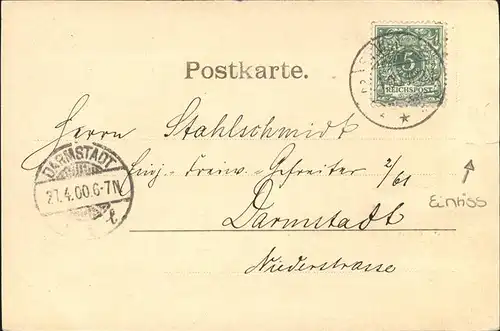 5
REICHSPOST
Postkarte.
Herrn Stahlschmidt
Einj.-Freiw.-Gefreiter 2/61
Darmstadt
Niederstrasse
DARMSTADT
27.4.00.6-7N
Einriss